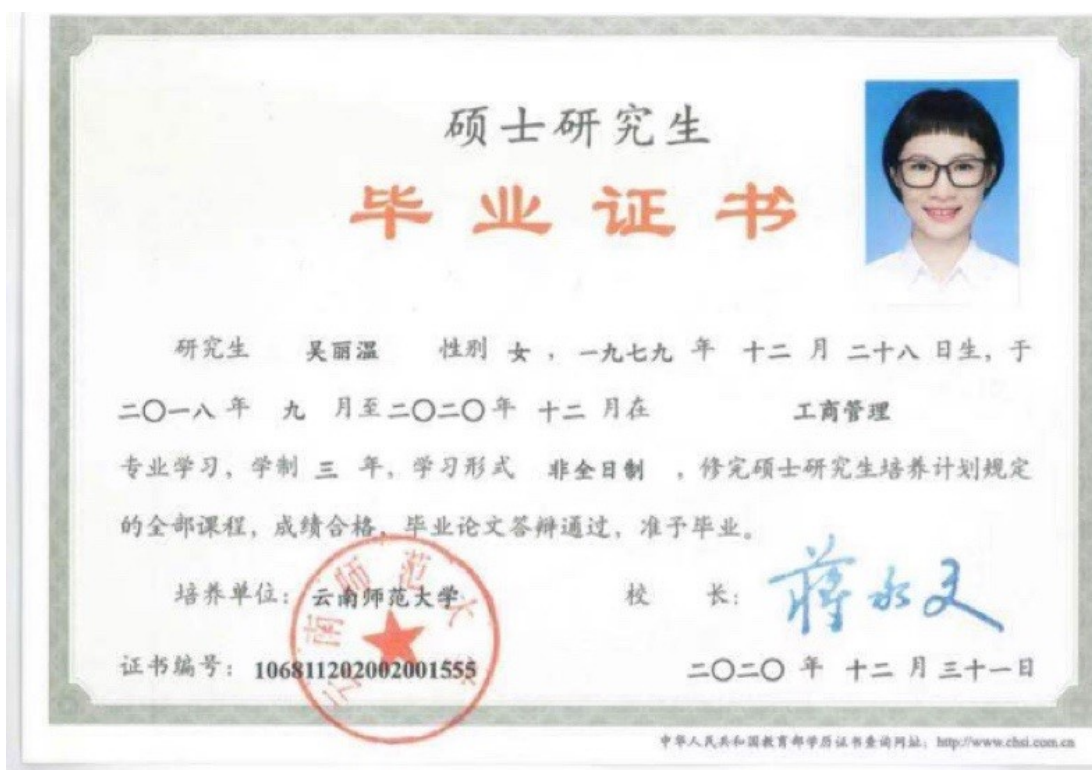 硕士研究生
毕业证书
研究生 吴丽温 性别 女 ，一九七九 年 十二 月 二十八 日生，于
二〇一八 年 九 月至二〇二〇年 十二 月在 工商管理
专业学习，学制 三 年，学习形式 非全日制 ，修完硕士研究生培养计划规定
的全部课程，成绩合格，毕业论文答辩通过，准予毕业。
培养单位：云南师范大学 校 长：蒋永文
云南师范大学
证书编号：106811202002001555 二〇二〇 年 十二 月 三十一日
中华人民共和国教育部学历证书查询网址：http://www.chsi.com.cn